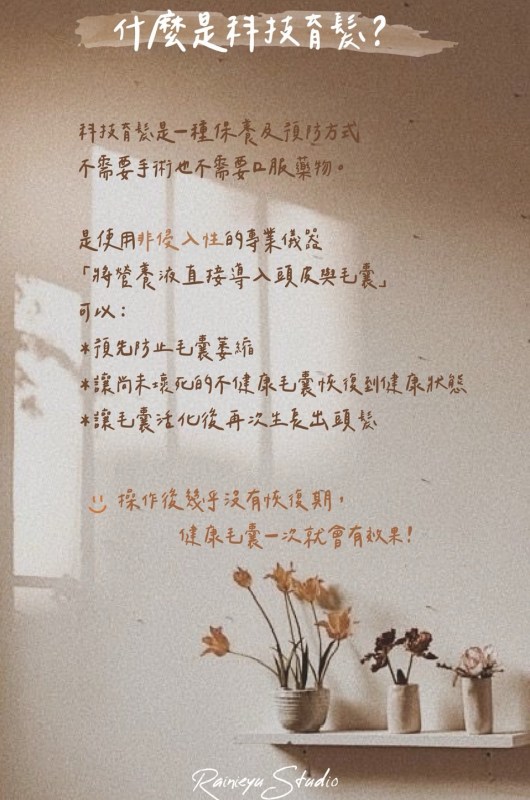 什麼是科技育髮?
科技育髮是一種保養及預防方式
不需要手術也不需要口服藥物。
是使用非侵入性的專業儀器
「將營養液直接導入頭皮與毛囊」
可以:
*預先防止毛囊萎縮
*讓尚未壞死的不健康毛囊恢復到健康狀態
*讓毛囊活化後再次生長出頭髮
操作後幾乎沒有恢復期,
健康毛囊一次就會有效果!
Rainieyu Studio